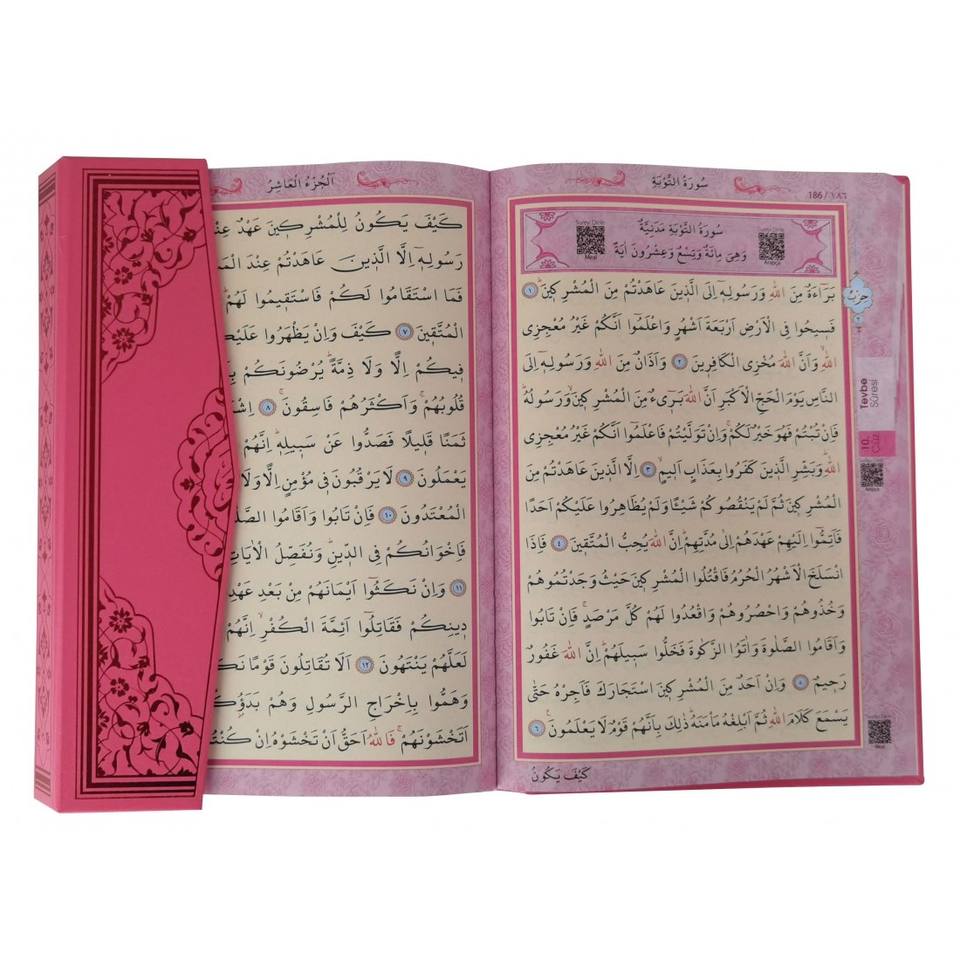 سُورَةُ التَّوْبَةِ
186 / ١٨٦
سُورَةُ التَّوْبَةِ مَدَنِيَّةٌ
وَهِيَ مِائَةٌ وَتِسْعٌ وَعِشْرُونَ اٰيَةً
Meal
بَرَٓاءَةٌ مِنَ اللّٰهِ وَرَسُولِه۪ٓ اِلَى الَّذ۪ينَ عَاهَدْتُمْ مِنَ الْمُشْرِك۪ينَۜ ١
فَس۪يحُوا فِي الْاَرْضِ اَرْبَعَةَ اَشْهُرٍ وَاعْلَمُٓوا اَنَّكُمْ غَيْرُ مُعْجِزِي
اللّٰهِۙ وَاَنَّ اللّٰهَ مُخْزِي الْكَافِر۪ينَ ٢ وَاَذَانٌ مِنَ اللّٰهِ وَرَسُولِه۪ٓ اِلَى
النَّاسِ يَوْمَ الْحَجِّ الْاَكْبَرِ اَنَّ اللّٰهَ بَر۪ٓيءٌ مِنَ الْمُشْرِك۪ينَۙ وَرَسُولُهُۜ
فَاِنْ تُبْتُمْ فَهُوَ خَيْرٌ لَكُمْۚ وَاِنْ تَوَلَّيْتُمْ فَاعْلَمُٓوا اَنَّكُمْ غَيْرُ مُعْجِزِي
اللّٰهِۜ وَبَشِّرِ الَّذ۪ينَ كَفَرُوا بِعَذَابٍ اَل۪يمٍۙ ٣ اِلَّا الَّذ۪ينَ عَاهَدْتُمْ مِنَ
الْمُشْرِك۪ينَ ثُمَّ لَمْ يَنْقُصُوكُمْ شَيْـًٔا وَلَمْ يُظَاهِرُوا عَلَيْكُمْ اَحَدًا
فَاَتِمُّٓوا اِلَيْهِمْ عَهْدَهُمْ اِلٰى مُدَّتِهِمْۜ اِنَّ اللّٰهَ يُحِبُّ الْمُتَّق۪ينَ ٤ فَاِذَا
انْسَلَخَ الْاَشْهُرُ الْحُرُمُ فَاقْتُلُوا الْمُشْرِك۪ينَ حَيْثُ وَجَدْتُمُوهُمْ
وَخُذُوهُمْ وَاحْصُرُوهُمْ وَاقْعُدُوا لَهُمْ كُلَّ مَرْصَدٍۚ فَاِنْ تَابُوا
وَاَقَامُوا الصَّلٰوةَ وَاٰتَوُا الزَّكٰوةَ فَخَلُّوا سَب۪يلَهُمْۜ اِنَّ اللّٰهَ غَفُورٌ
رَح۪يمٌ ٥ وَاِنْ اَحَدٌ مِنَ الْمُشْرِك۪ينَ اسْتَجَارَكَ فَاَجِرْهُ حَتّٰى
يَسْمَعَ كَلَامَ اللّٰهِ ثُمَّ اَبْلِغْهُ مَأْمَنَهُۜ ذٰلِكَ بِاَنَّهُمْ قَوْمٌ لَا يَعْلَمُونَ۟ ٦
كَيْفَ يَكُونُ
حزب
Tevbe
Sûresi
10.
Cüz
اَلْجُزْءُ الْعَاشِرُ
كَيْفَ يَكُونُ لِلْمُشْرِك۪ينَ عَهْدٌ
رَسُولِه۪ٓ اِلَّا الَّذ۪ينَ عَاهَدْتُمْ عِنْدَ
فَمَا اسْتَقَامُوا لَكُمْ فَاسْتَق۪يمُوا لَهُمْ
الْمُتَّق۪ينَ ٧ كَيْفَ وَاِنْ يَظْهَرُوا
ف۪يكُمْ اِلًّا وَلَا ذِمَّةًۜ يُرْضُونَكُمْ
قُلُوبُهُمْۚ وَاَكْثَرُهُمْ فَاسِقُونَۚ ٨
ثَمَنًا قَل۪يلًا فَصَدُّوا عَنْ سَب۪يلِه۪ۜ اِنَّهُمْ
يَعْمَلُونَ ٩ لَا يَرْقُبُونَ ف۪ي مُؤْمِنٍ اِلًّا وَلَا
الْمُعْتَدُونَ ١٠ فَاِنْ تَابُوا وَاَقَامُوا
فَاِخْوَانُكُمْ فِي الدّ۪ينِۜ وَنُفَصِّلُ الْاٰيَاتِ
١١ وَاِنْ نَكَثُٓوا اَيْمَانَهُمْ مِنْ بَعْدِ
د۪ينِكُمْ فَقَاتِلُٓوا اَئِمَّةَ الْكُفْرِۙ اِنَّهُمْ
لَعَلَّهُمْ يَنْتَهُونَ ١٢ اَلَا تُقَاتِلُونَ قَوْمًا
وَهَمُّوا بِاِخْرَاجِ الرَّسُولِ وَهُمْ
اَتَخْشَوْنَهُمْۚ فَاللّٰهُ اَحَقُّ اَنْ تَخْشَوْهُ اِنْ